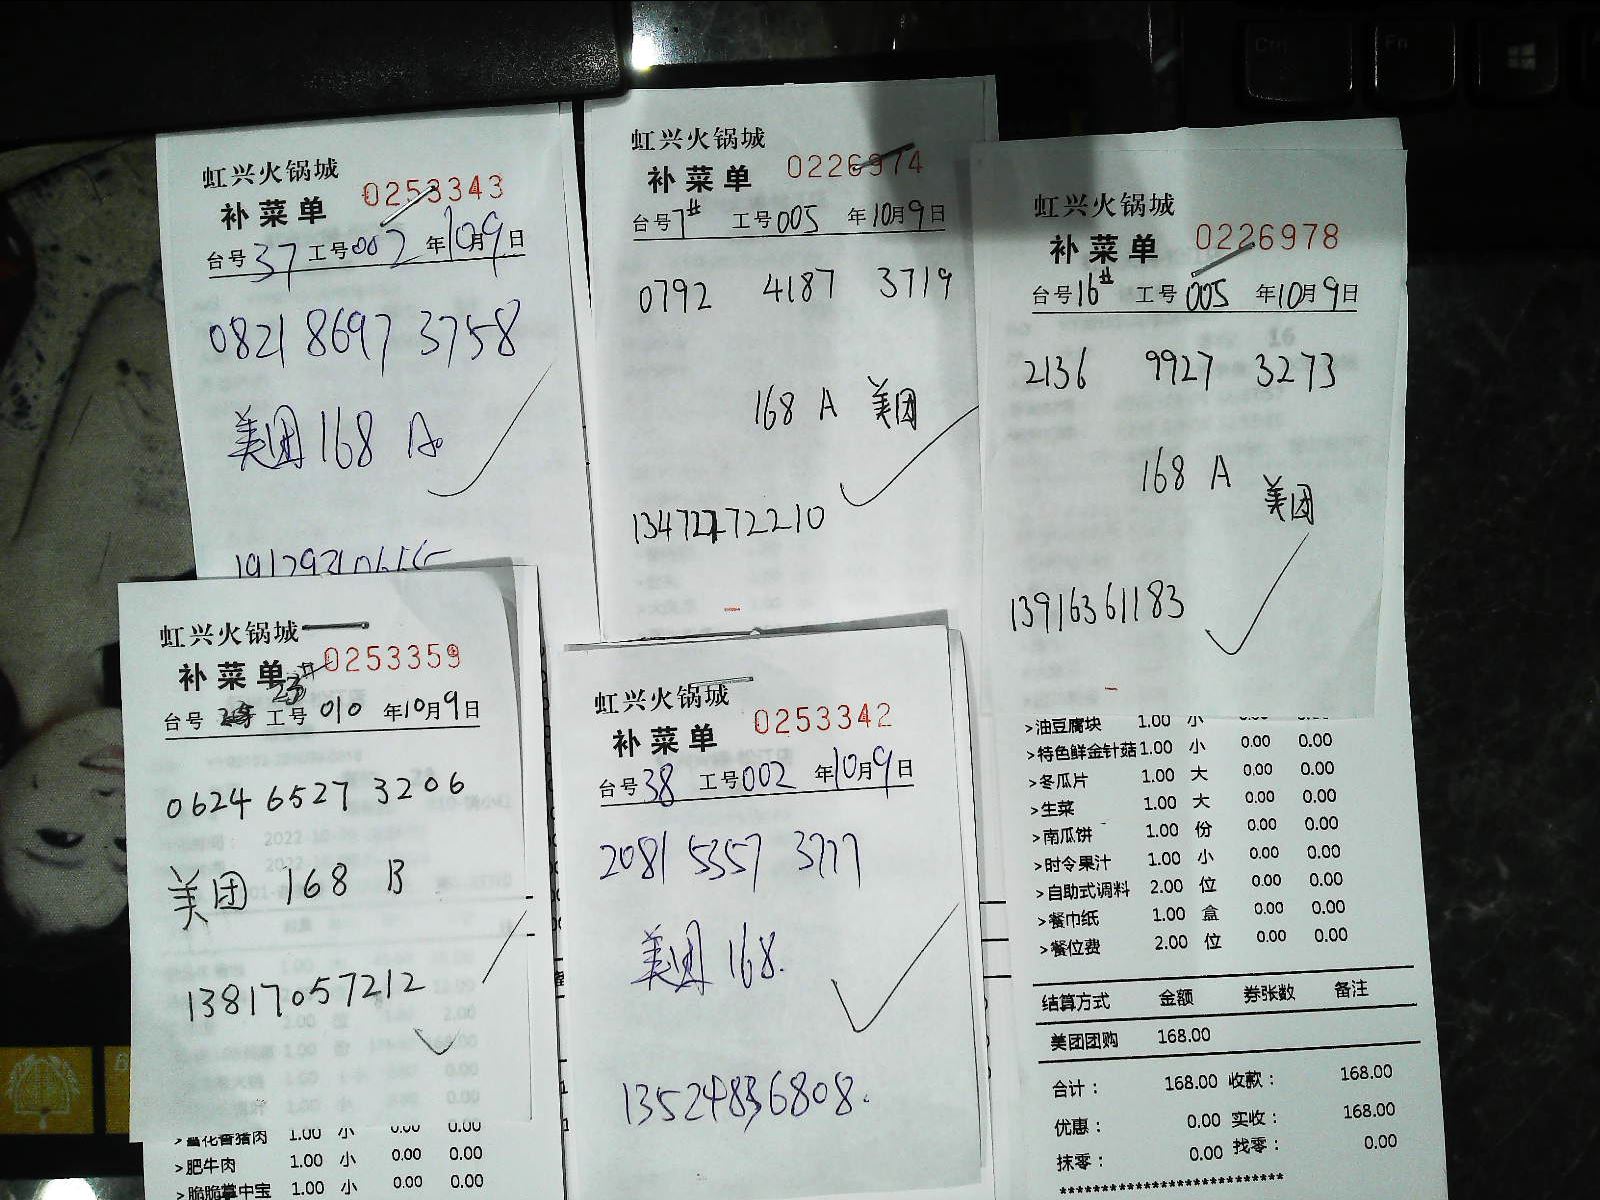 虹兴火锅城
补菜单 0253343
台号 37 工号 002 年 10月 9日
0821 8697 3758
美团 168 A
虹兴火锅城
补菜单 0226974
台号 7# 工号 005 年 10月 9日
0792 4187 3719
168 A 美团
虹兴火锅城
补菜单 0226978
台号 16# 工号 005 年 10月 9日
2136 9927 3273
168 A 美团
13916361183
>油豆腐块 1.00 小 0.00 0.00
>特色鲜金针菇 1.00 小 0.00 0.00
>冬瓜片 1.00 大 0.00 0.00
>生菜 1.00 大 0.00 0.00
>南瓜饼 1.00 份 0.00 0.00
>时令果汁 1.00 小 0.00 0.00
>自助式调料 2.00 位 0.00 0.00
>餐巾纸 1.00 盒 0.00 0.00
>餐位费 2.00 位 0.00 0.00
结算方式 金额 券张数 备注
美团团购 168.00
合计： 168.00 收款： 168.00
优惠： 0.00 实收： 168.00
抹零： 0.00 找零： 0.00
**************************
虹兴火锅城
补菜单 0253359
台号 23# 工号 010 年 10月 9日
0624 6527 3206
美团 168 B
13817057212
1.00 小 0.00 0.00
>肥牛肉 1.00 小 0.00 0.00
>脆脆掌中宝 1.00 小 0.00 0.00
虹兴火锅城
补菜单 0253342
台号 38 工号 002 年 10月 9日
2081 5357 3777
美团 168.
Ctrl
Fn